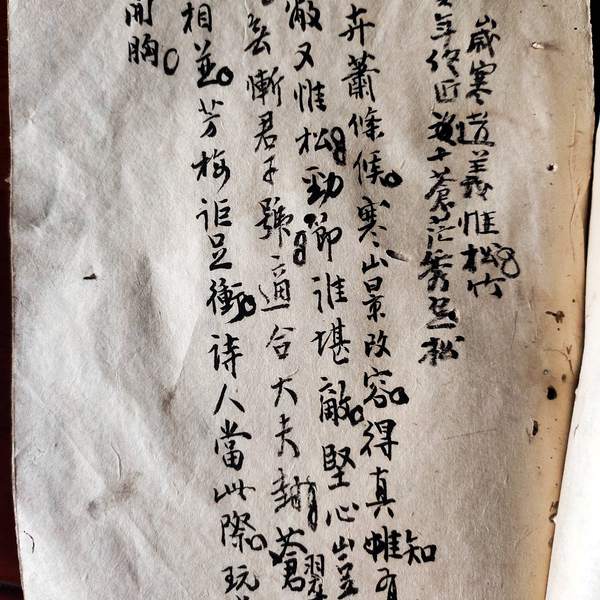 歲寒道義惟松竹
年 匠 十蒼茫秀 松
卉蕭條候寒山景改容得真惟知有
敵又惟松勁節誰堪敵堅心豈
慚君子號適合大夫封蒼翠
相並芳梅詎足衝诗人當此際玩
開胸